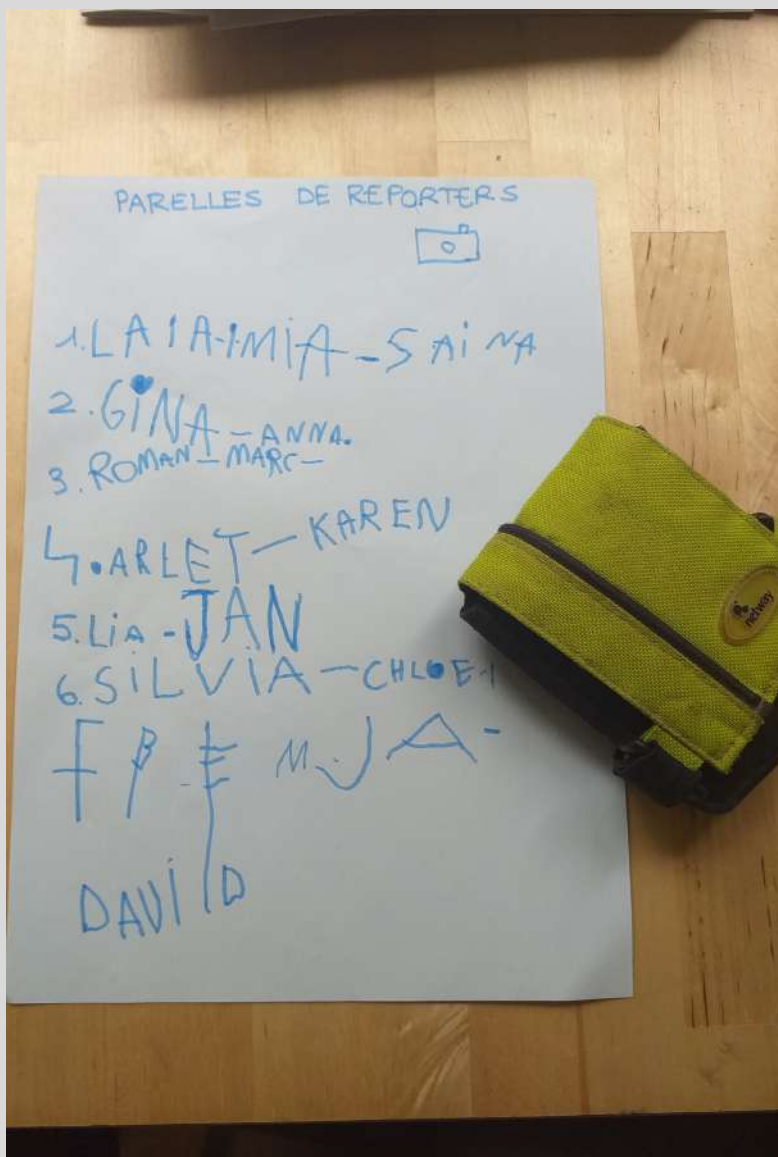 PARELLES DE REPORTERS
1. LAIA-IMIA - SAINA
2. GiNA - ANNA.
3. ROMAN - MARC -
4. ARLET - KAREN
5. LiA - JAN
6. SiLViA - CHLOE-1
M.JA-
DAViD
netway